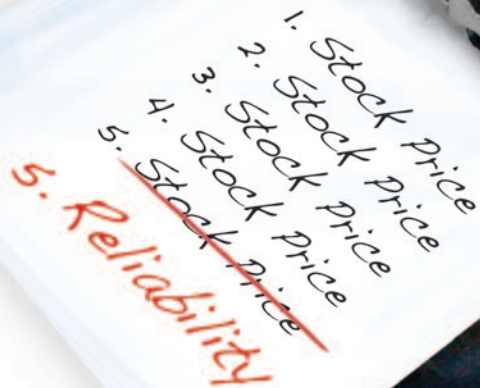 1. Stock Price
2. Stock Price
3. Stock Price
4. Stock Price
5. Stock Price
5. Reliability